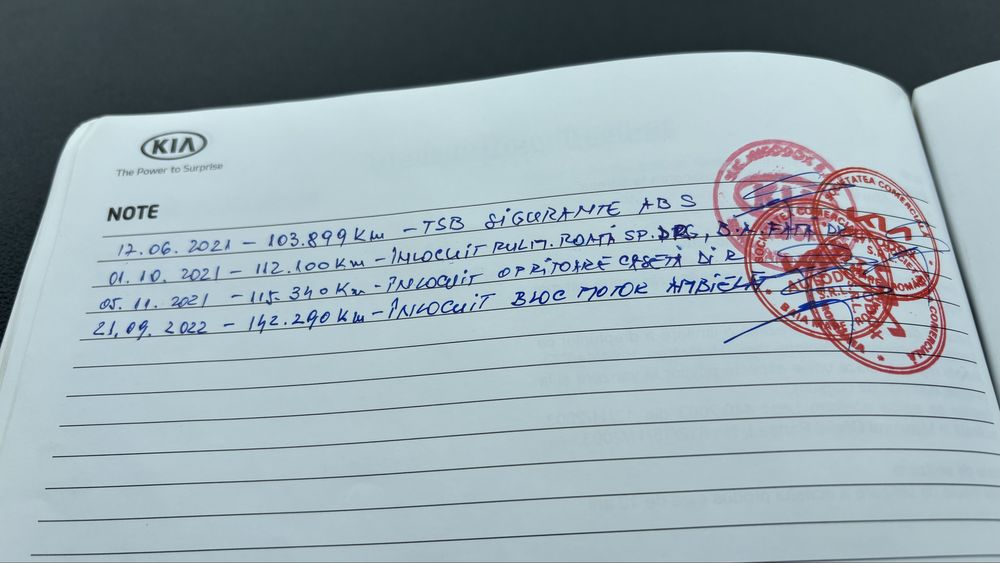 KIA
The Power to Surprise
NOTE
17.06.2021 - 103.899 Km - TSB SIGURANTE ABS
01.10.2021 - 112.100 Km - ÎNLOCUIT RULM. ROATĂ SP. DRG, D.A. FATA DR
05.11.2021 - 115.340 Km - ÎNLOCUIT OPRITOARE CASETĂ DIR
21.09.2022 - 142.290 Km - ÎNLOCUIT BLOC MOTOR AMBIELAT
SOCIETATEA COMERCIALĂ
KIA
SOCIETATEA COMERCIALĂ
BAIA MARE
COMERCIALĂ